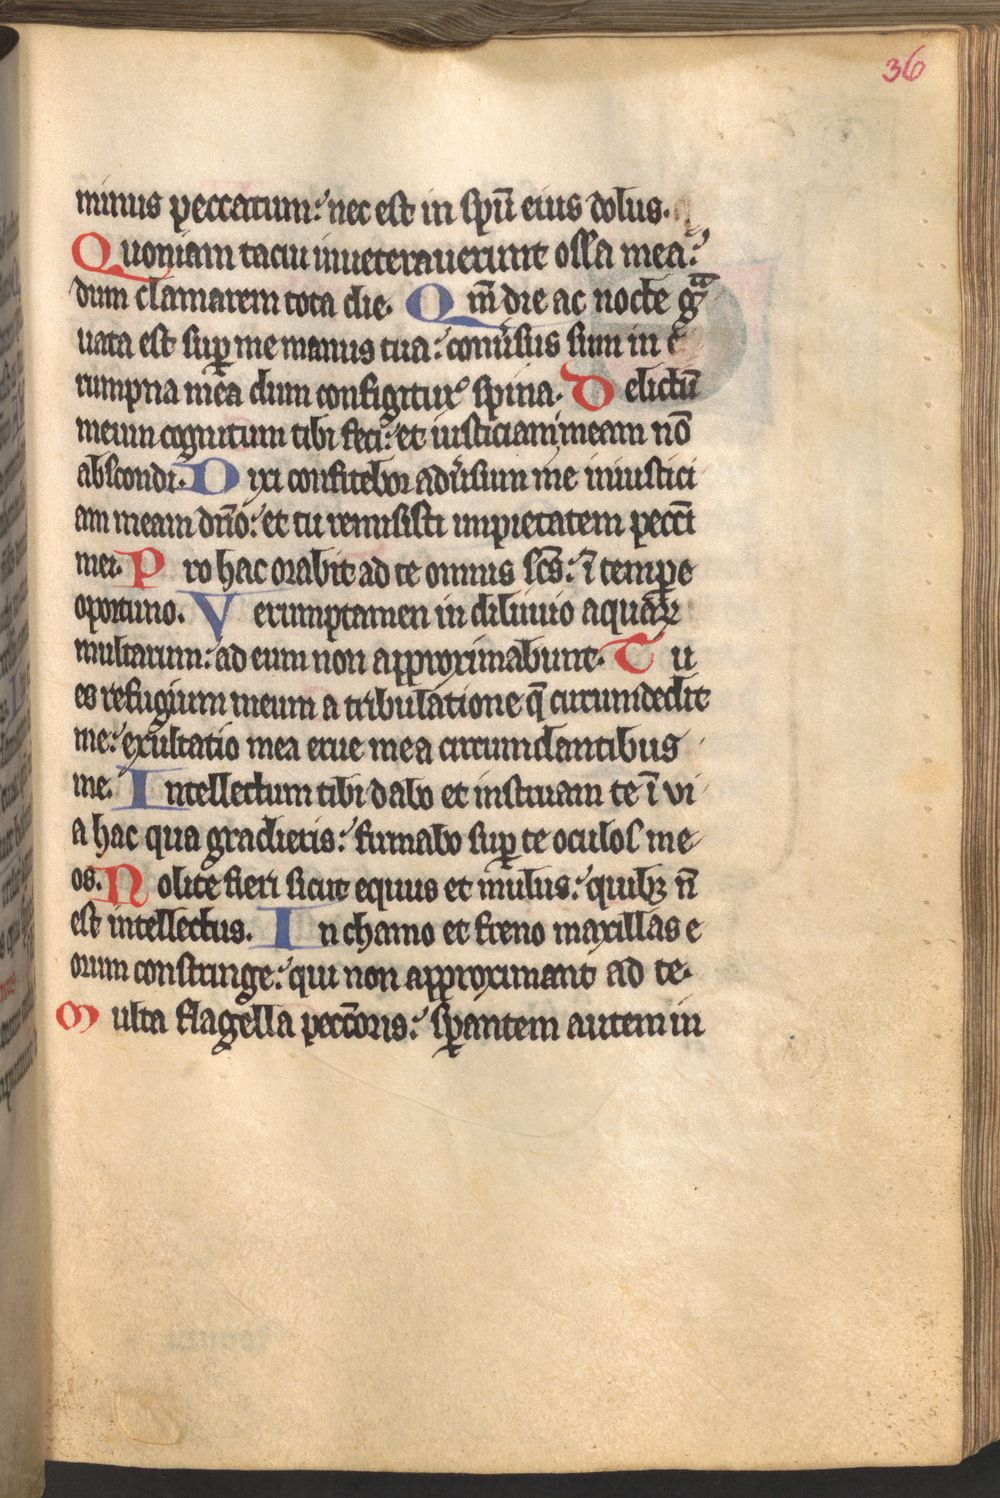 36
minus peccatum: nec est in spū eius dolus.
Quoniam tacui inueterauerunt ossa mea:
dum clamarem tota die. Qm̄ die ac nocte gͣ
uata est sup me manus tua: conūsus sum in
rumpna mea dum configitur spina. Delictū
meum cognitum tibi feci: et iusticiam meam nō
abscondi. Dixi confitebor adūsum me iniustici
am meam dn̄o: et tu remisisti impietatem pecc̄i
mei. Pro hac orabit ad te omnis sc̄s: ī tempe
oportuno. Verumptamen in diluuio aquaꝝ
multarum: ad eum non approximabunt. Tu
es refugium meum a tribulatione q̄ circumdedit
me: exultatio mea erue me a circumdantibus
me. Intellectum tibi dabo et instruam te ī vi
a hac qua gradieris: firmabo sup te oculos me
os. Nolite fieri sicut equus et mulus: quibꝫ n̄
est intellectus. In chamo et freno maxillas e
orum constringe: qui non approximant ad te.
Multa flagella pecc̄oris: sꝑantem autem in